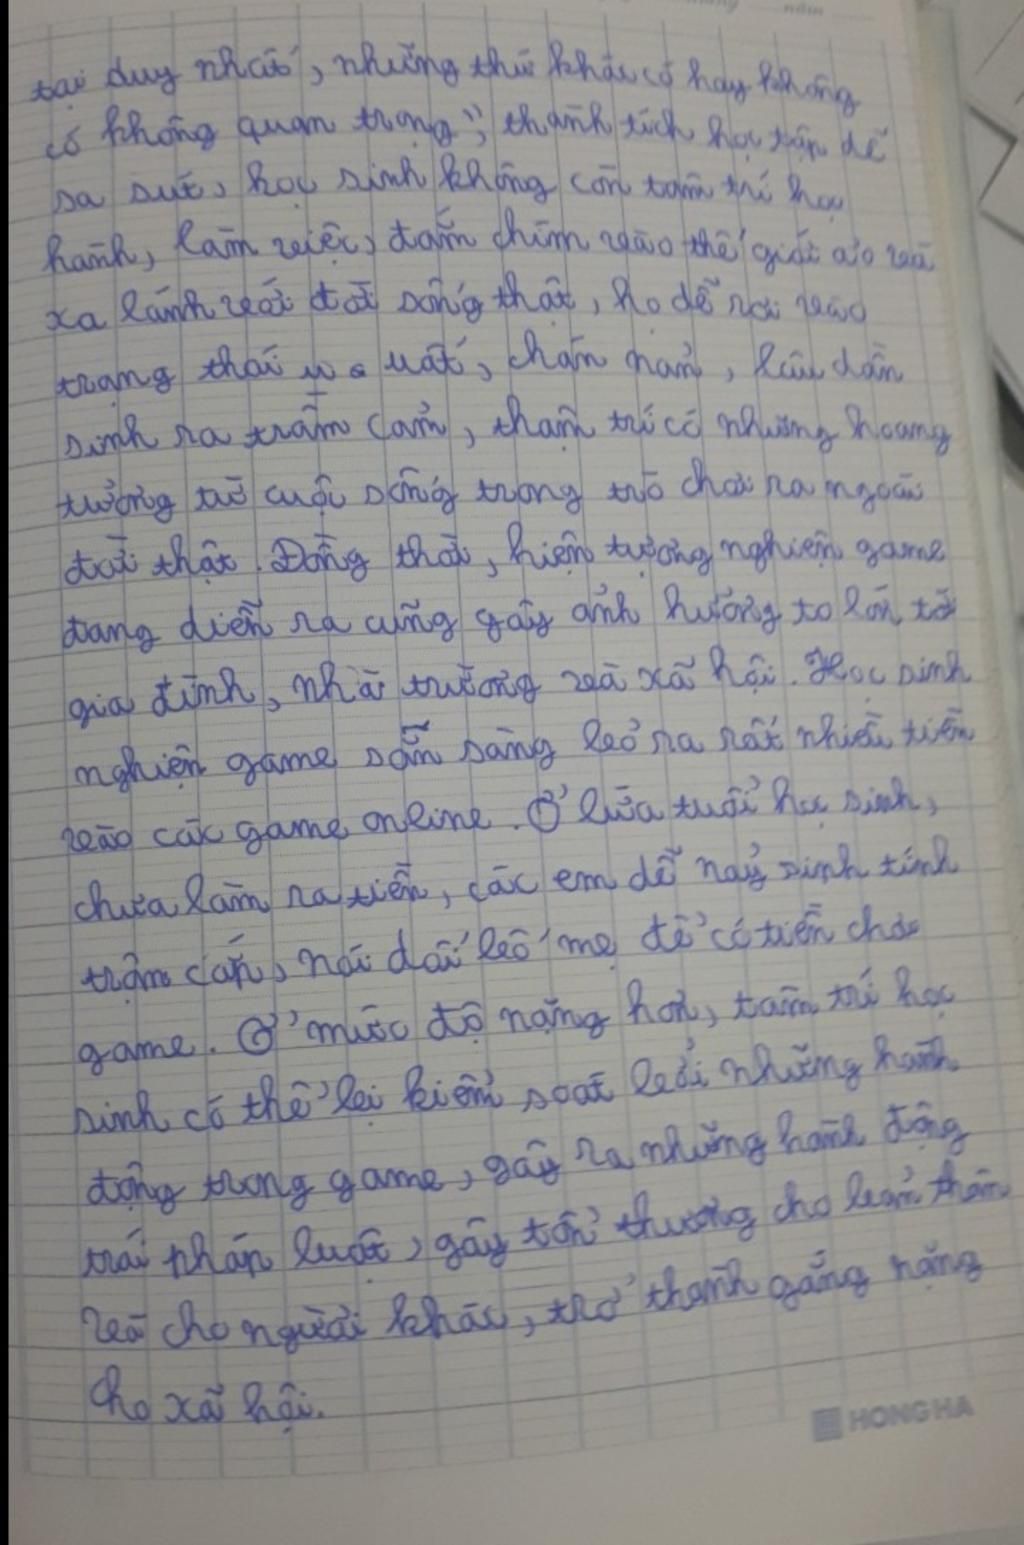 tại duy nhất, những thứ khác có hay không
có không quan trọng", thành tích học tập dễ
sa sút, học sinh không còn tâm trí học
hành, làm việc, đắm chìm vào thế giới ảo và
xa lánh với đời sống thật, họ dễ rơi vào
trạng thái u uất, chán nản, lâu dần
sinh ra trầm cảm, thậm trí có những hoang
tưởng từ cuộc sống trong trò chơi ra ngoài
đời thật. Đồng thời, hiện tượng nghiện game
đang diễn ra cũng gây ảnh hưởng to lớn tới
gia đình, nhà trường và xã hội. Học sinh
nghiện game sẵn sàng bỏ ra rất nhiều tiền
vào các game online. Ở lứa tuổi học sinh,
chưa làm ra tiền, các em dễ nảy sinh tính
trộm cắp, nói dối bố mẹ để có tiền chơi
game. Ở mức độ nặng hơn, tâm trí học
sinh có thể bị kiểm soát bởi những hành
động trong game, gây ra những hành động
trái pháp luật, gây tổn thương cho bản thân
và cho người khác, trở thành gắng nặng
cho xã hội.
HONG HA